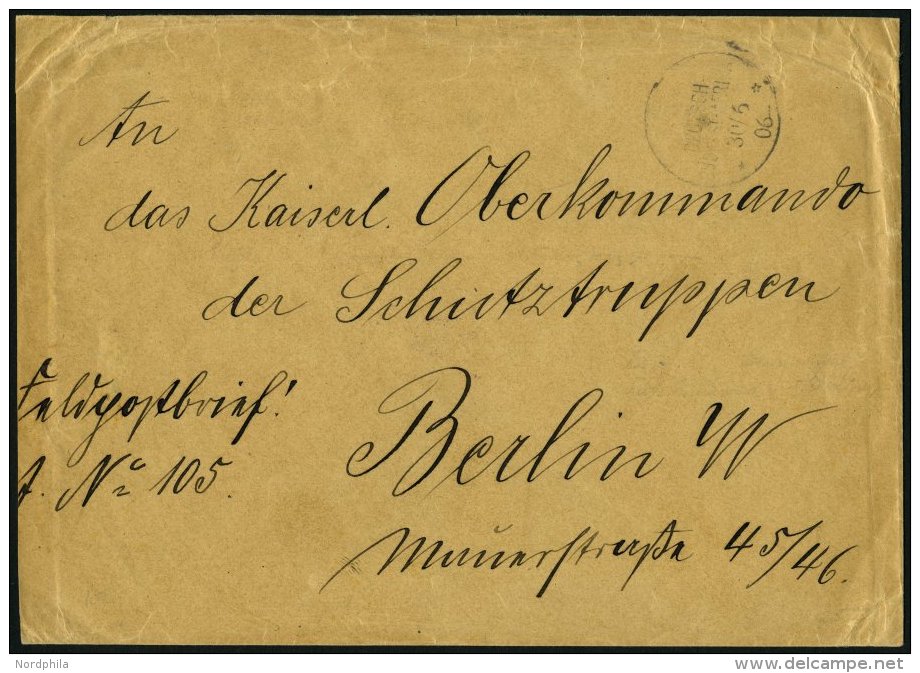 An
das Kaiserl. Oberkommando
der Schutztruppen
Feldpostbrief!
Berlin W
J. No 105.
Mauerstraße 45/46.
30/6
06
Nordphila
delcampe.net